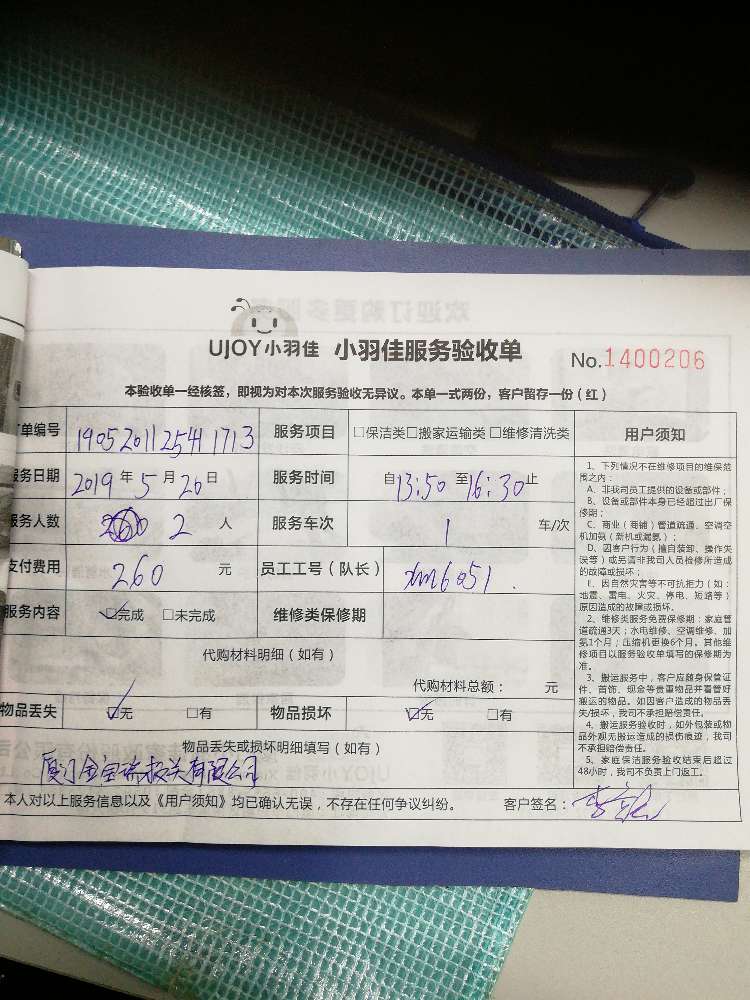 UJOY小羽佳 小羽佳服务验收单 No.1400206
本验收单一经核签，即视为对本次服务验收无异议。本单一式两份，客户留存一份（红）
单编号 190520112541713 服务项目 □保洁类□搬家运输类□维修清洗类 用户须知
服务日期 2019年5月20日 服务时间 自13:50至16:30止
服务人数 2 人 服务车次 1 车/次
支付费用 260 元 员工工号（队长） xm6051
服务内容 ☑完成 □未完成 维修类保修期
代购材料明细（如有）
代购材料总额： 元
物品丢失 ☑无 □有 物品损坏 ☑无 □有
物品丢失或损坏明细填写（如有）
厦门金宝瑞报关有限公司
本人对以上服务信息以及《用户须知》均已确认无误，不存在任何争议纠纷。 客户签名：
1、下列情况不在维修项目的维保范
围之内：
A、非我司员工提供的设备或部件；
B、设备或部件本身已经超过出厂保
修期；
C、商业（商铺）管道疏通、空调空
机加氨（新机或漏氨）；
D、因客户行为（擅自装卸、操作失
误等）或另请非我司人员检修所造成
的故障或损坏；
E、因自然灾害等不可抗拒力（如：
地震、雷电、火灾、停电、短路等）
原因造成的故障或损坏。
2、维修类服务免费保修期：家庭管
道疏通3天；水电维修、空调维修、加
氨1个月；压缩机更换6个月。其他维
修项目以服务验收单填写的保修期为
准。
3、搬运服务中，客户应随身保管证
件、首饰、现金等贵重物品并看管好
搬运的物品。如因客户造成的物品丢
失/损坏，我司不承担赔偿责任。
4、搬运服务验收时，如外包装或物
品外观无搬运造成的损伤痕迹，我司
不承担赔偿责任。
5、家庭保洁服务验收结束后超过
48小时，我司不负责上门返工。